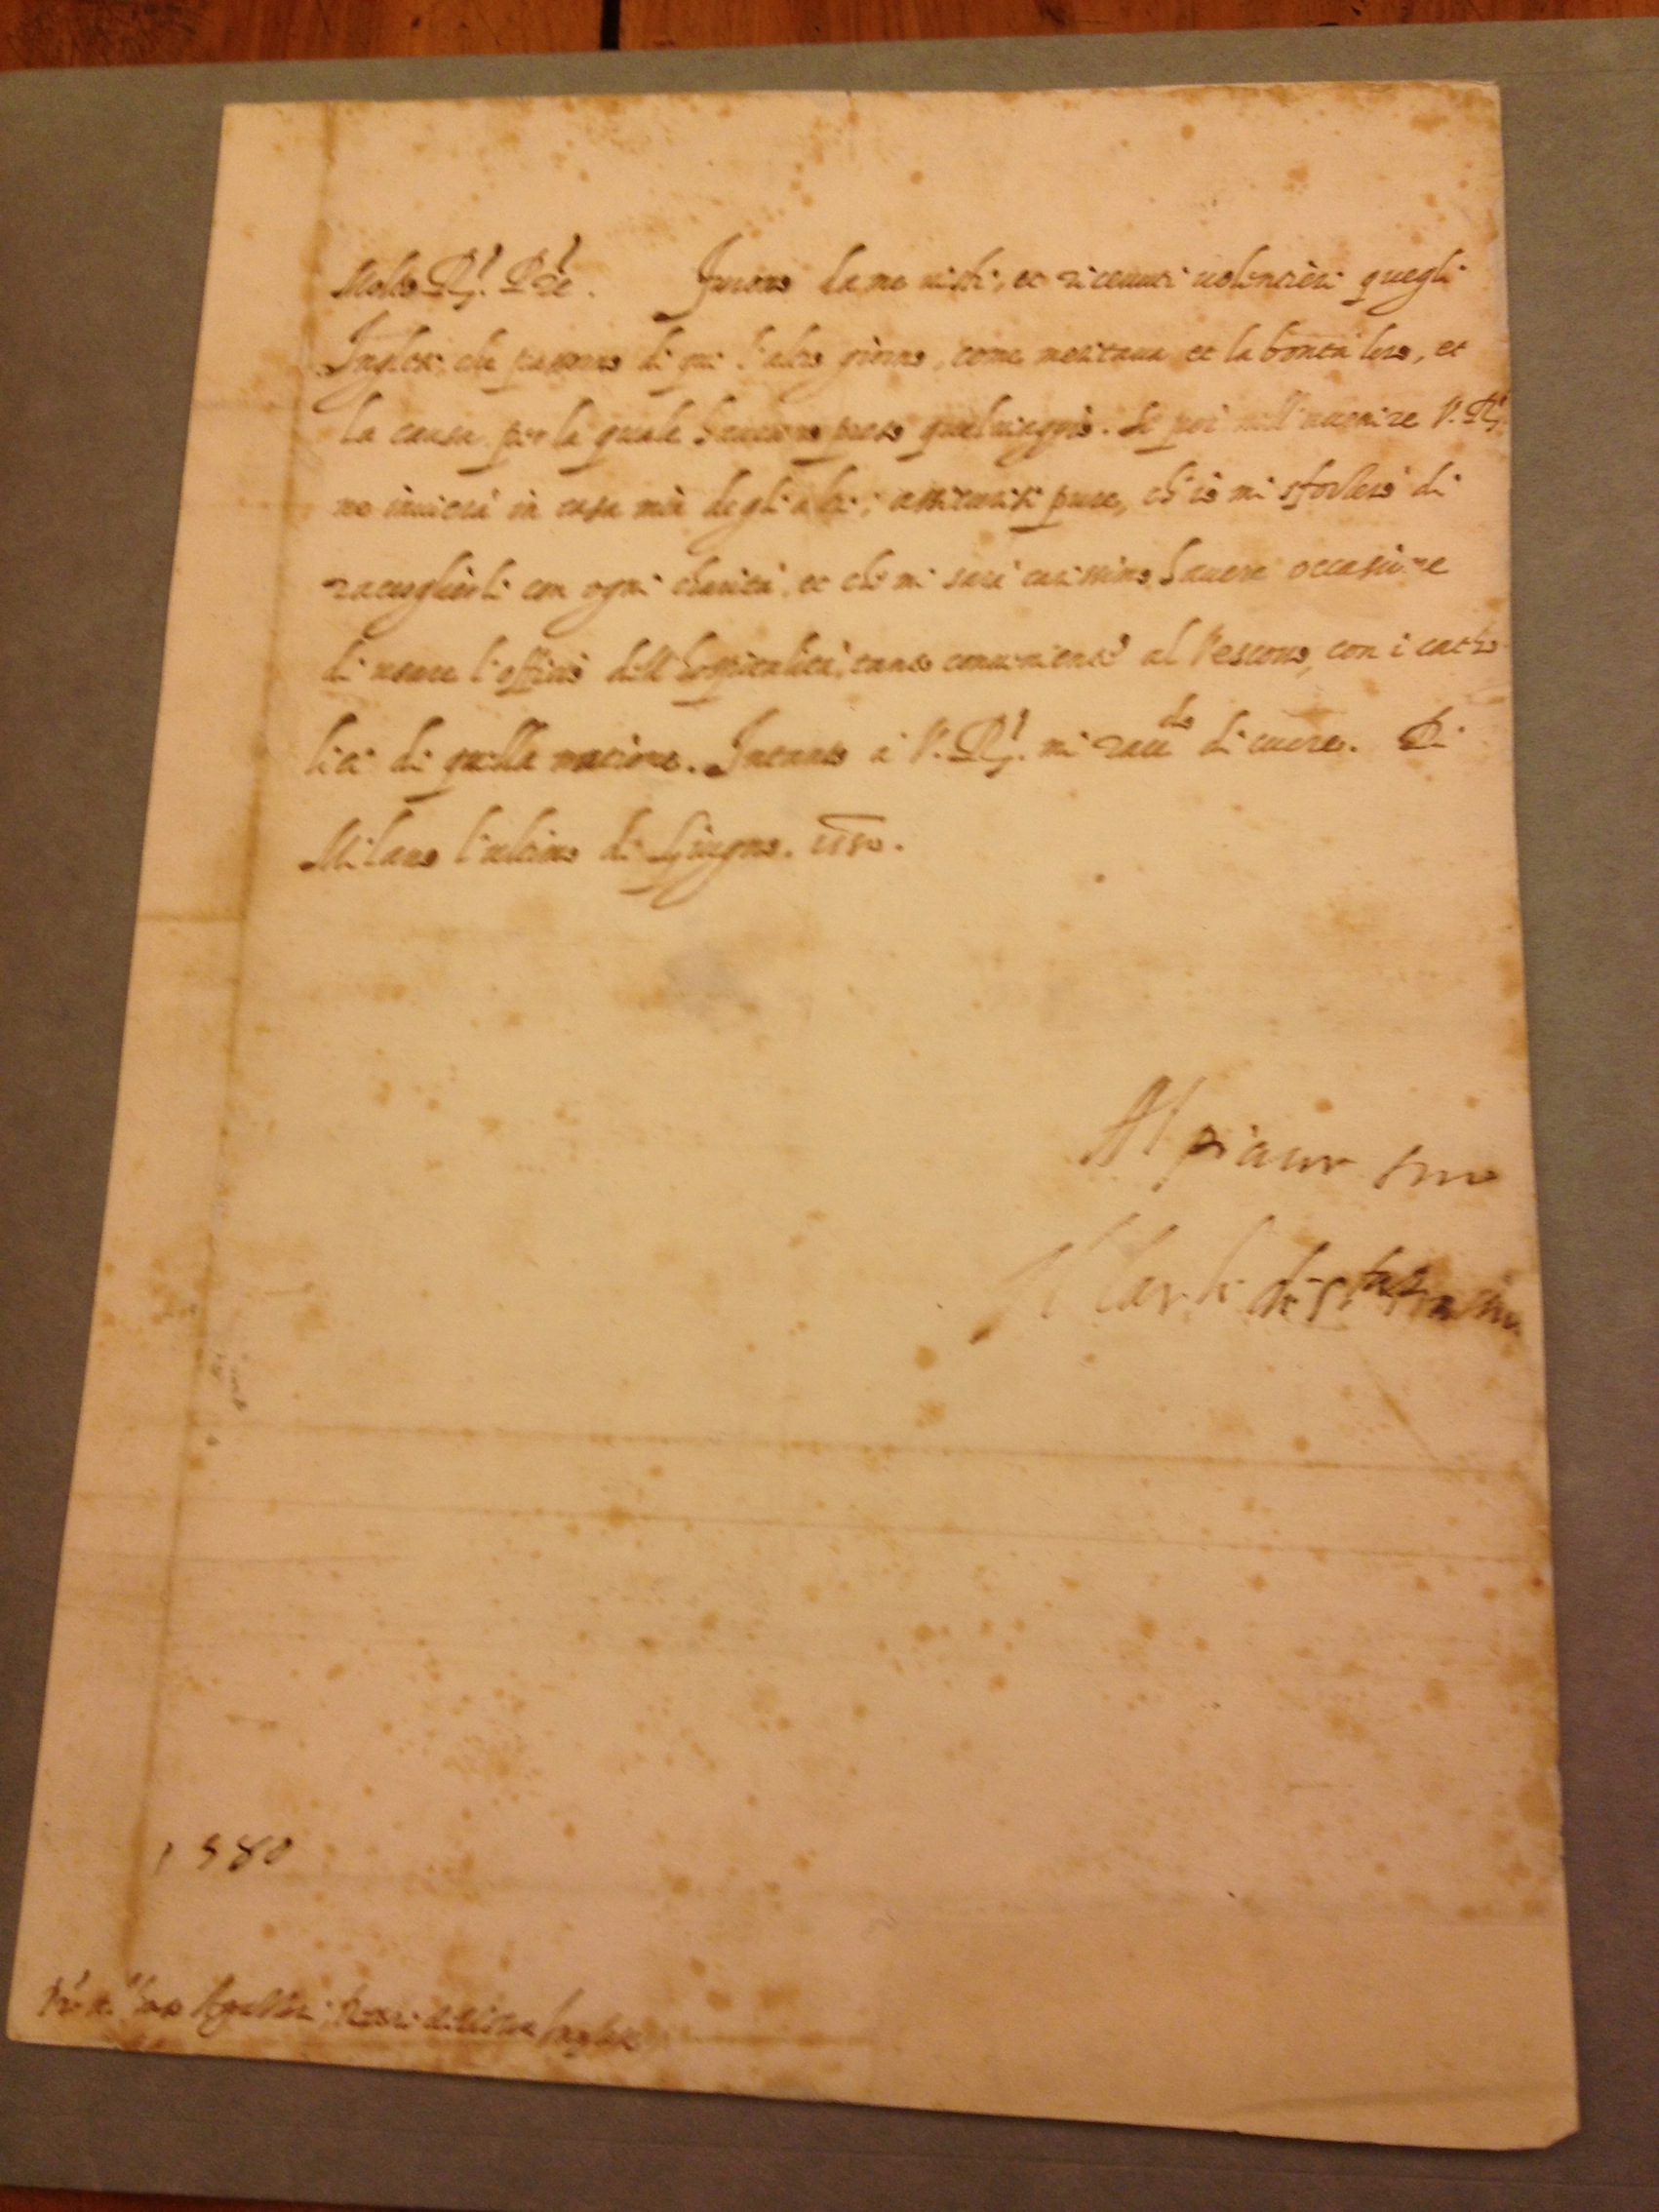 Molto R.do P.re. Furono da me visti, et ricevuti volontieri quegli
Inglesi che passorno di qui l'altro giorno, come meritava et la bontà loro, et
la causa per la quale havevano preso quel viaggio. Se poi nell'avenire V. R.
ne invierà in casa mia degli altri; assicurisi pure, ch'io mi sforzerò di
raccoglierli con ogni charità, et che mi sarà carissimo havere occasione
di usare l'officio dell'hospitalità, tanto conveniente al Vescovo, con i catho
lici di quella natione. Intanto a V. R. mi racc.do di cuore. Di
Milano l'ultimo di Giugno. 1580.
Al piacer suo
Il Car.le di S.ta Prassede
1580
Agazzari, Rettor del Coll. Inglese